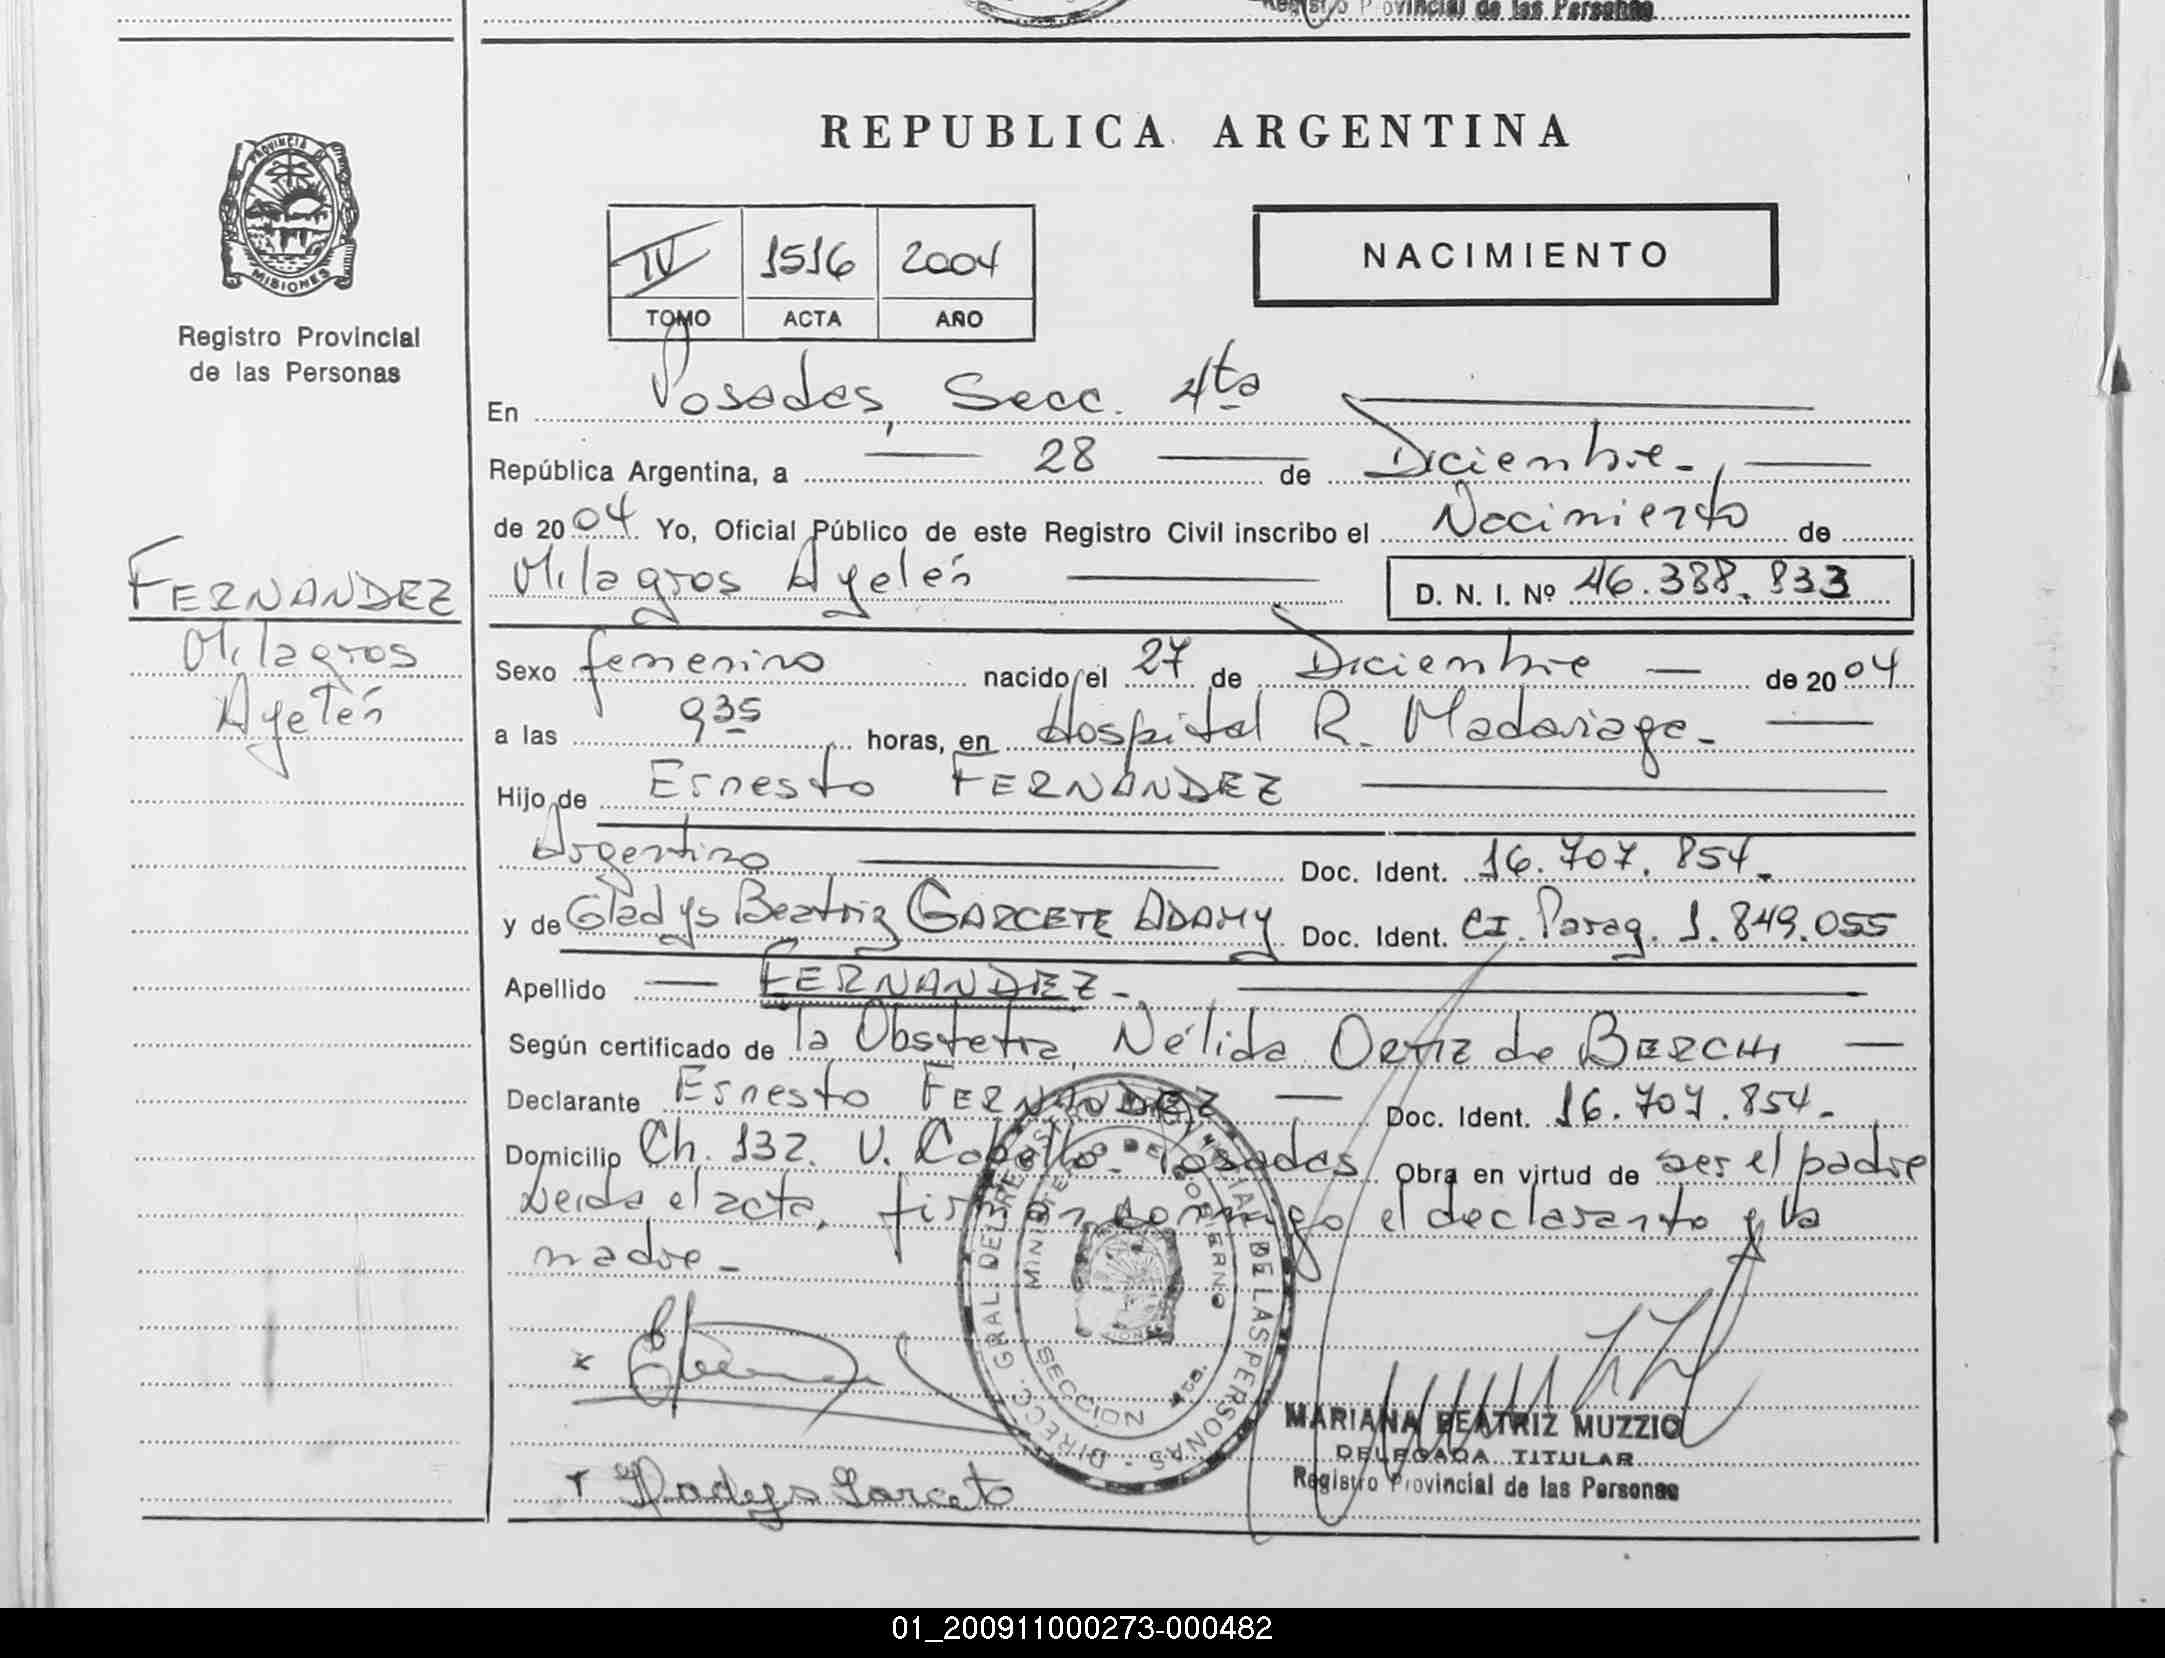 Registro Provincial de las Personas
PROVINCIA DE
MISIONES
Registro Provincial
de las Personas
REPUBLICA ARGENTINA
IV 1516 2004
TOMO ACTA AÑO
NACIMIENTO
En Posadas, Secc. 4ta
República Argentina, a 28 de Diciembre.
de 2004 Yo, Oficial Público de este Registro Civil inscribo el Nacimiento de
Milagros Ayelén D. N. I. Nº 46.388.833
FERNANDEZ
Milagros
Ayelén
Sexo femenino nacido el 27 de Diciembre de 2004
a las 9 35 horas, en Hospital R. Madariaga.
Hijo de Ernesto FERNANDEZ
Argentino Doc. Ident. 16.707.854.
y de Gladys Beatriz GARCETE ADAMY Doc. Ident. CI. Parag. 1.849.055
Apellido FERNANDEZ.
Según certificado de la Obstetra Nélida ORTIZ de BERCHI
Declarante Ernesto FERNANDEZ Doc. Ident. 16.707.854.
Domicilio Ch. 132. V. Cabello. Posadas Obra en virtud de ser el padre
Leida el acta, firman conmigo el declarante y la
madre.
DIRECC. GRAL. DEL REGISTRO PROVINCIAL DE LAS PERSONAS
MINISTERIO DE GOBIERNO
SECCION 4ta.
MARIANA BEATRIZ MUZZIO
DELEGADA TITULAR
Registro Provincial de las Personas
Gladys Garcete
01_200911000273-000482